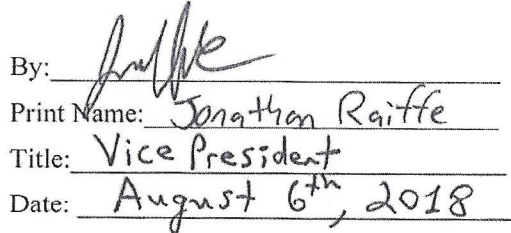 By:
Print Name: Jonathan Raiffe
Title: Vice President
Date: August 6th, 2018